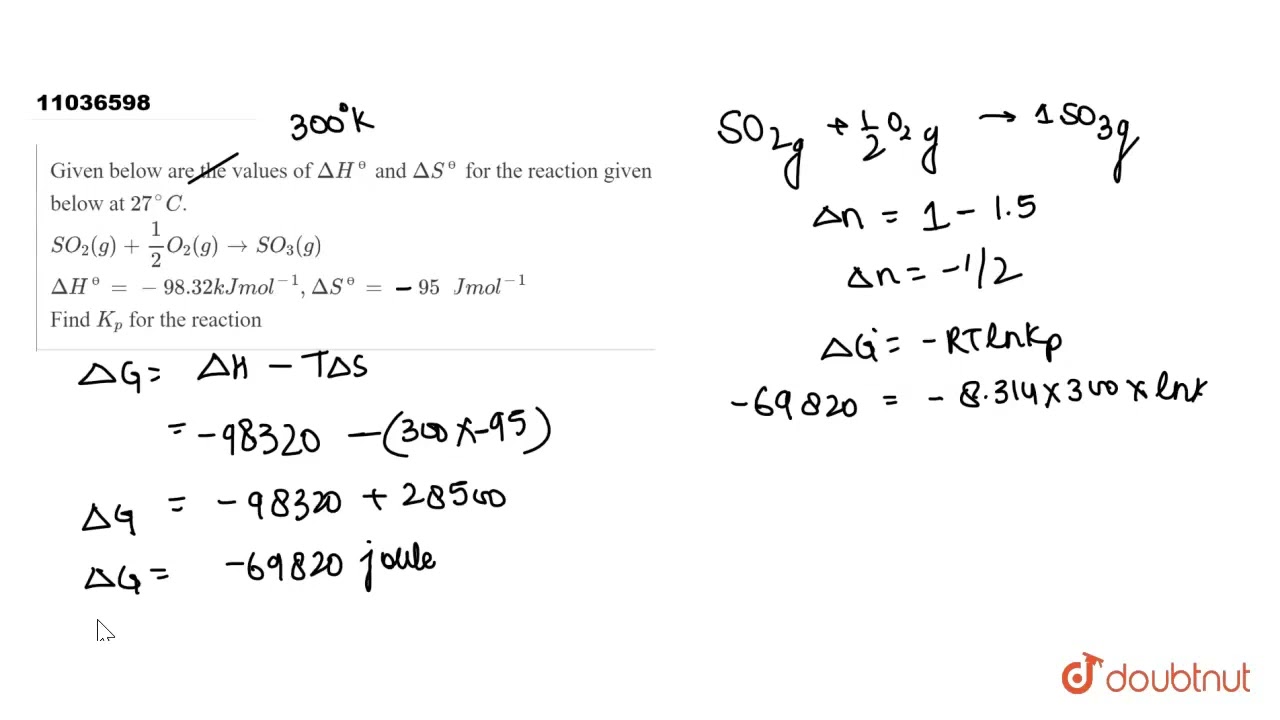 11036598
300°K
Given below are the values of ΔH⊖ and ΔS⊖ for the reaction given
below at 27°C.
SO₂(g) + 1/2 O₂(g) → SO₃(g)
ΔH⊖ = −98.32kJmol⁻¹, ΔS⊖ = −95 Jmol⁻¹
Find Kₚ for the reaction
ΔG = ΔH − TΔS
= −98320 −(300×−95)
ΔG = −98320 + 28500
ΔG = −69820 joule
SO₂g + 1/2 O₂g → 1SO₃g
Δn = 1 − 1.5
Δn = −1/2
ΔG° = −RTlnKp
−69820 = −8.314×300×lnK
doubtnut